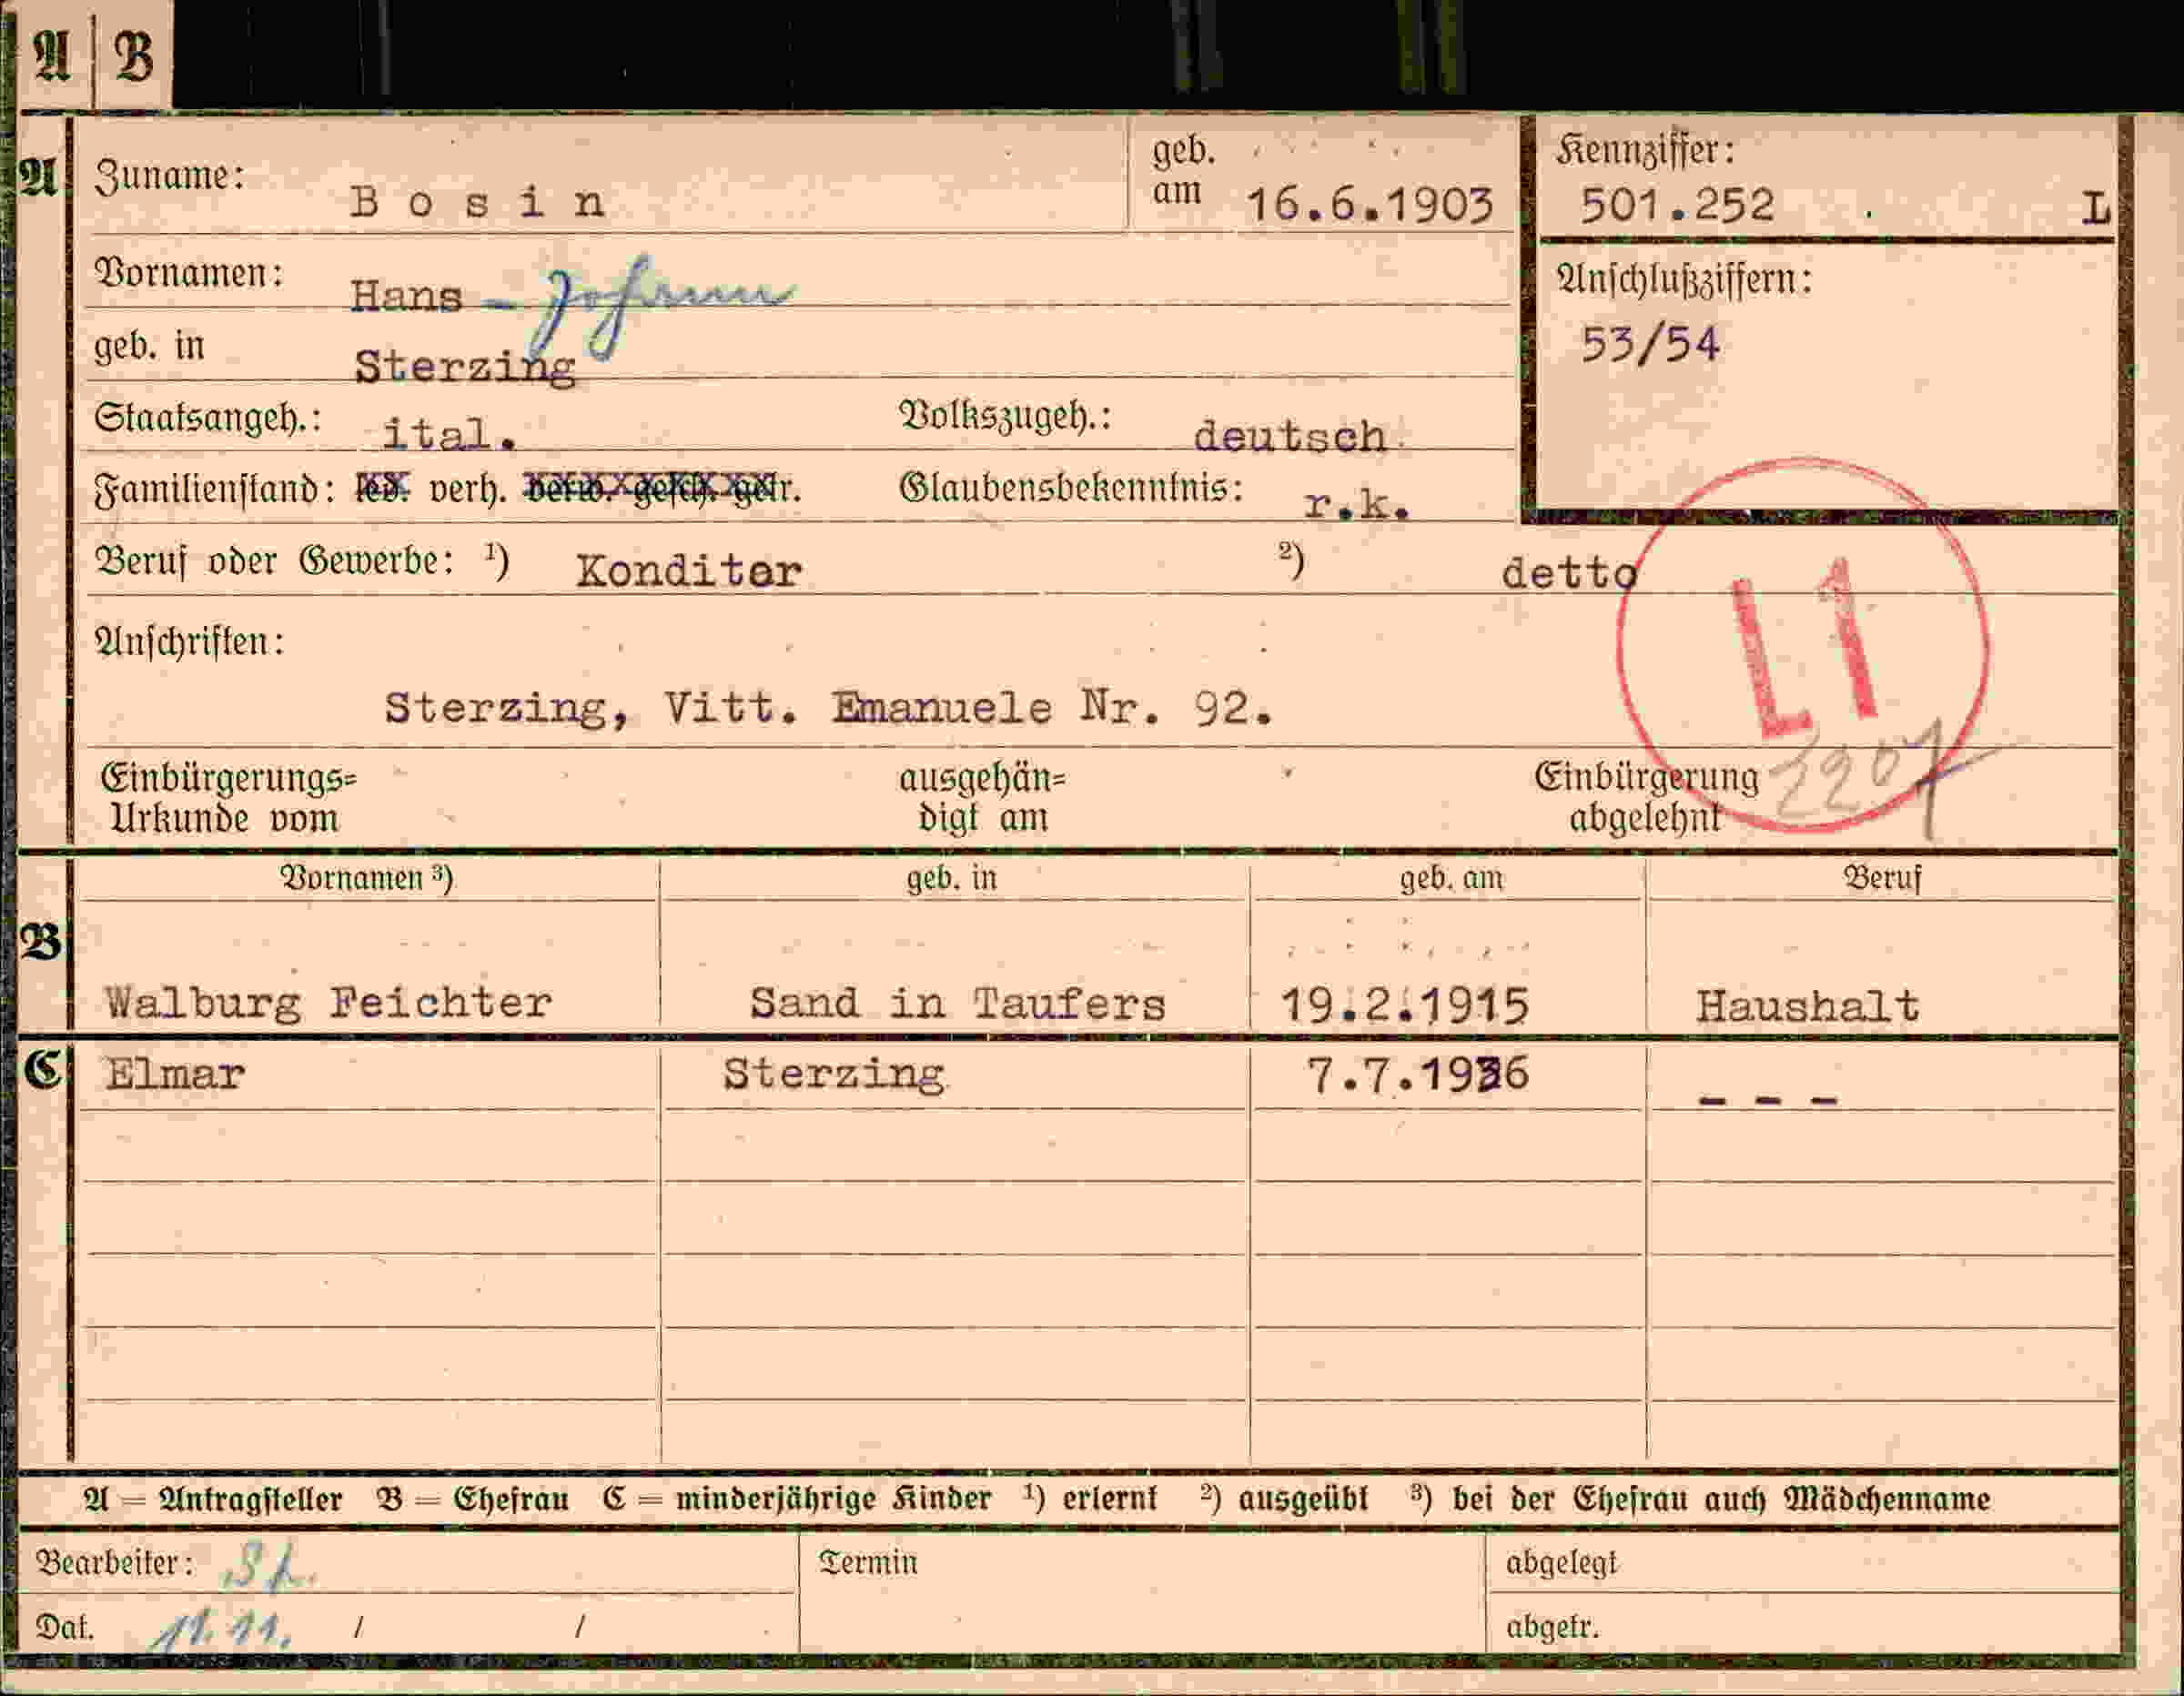 A B
A Zuname: Bosin geb. am 16.6.1903 Kennziffer: 501.252 L
Vornamen: Hans - Johann Anschlußziffern:
geb. in Sterzing 53/54
Staatsangeh.: ital. Volkszugeh.: deutsch
Familienstand: led. verh. verw. gesch. getr. Glaubensbekenntnis: r.k.
Beruf oder Gewerbe: 1) Konditor 2) detto
L1
Anschriften:
Sterzing, Vitt. Emanuele Nr. 92.
2207
Einbürgerungs= ausgehän= Einbürgerung
Urkunde vom digt am abgelehnt
Vornamen 3) geb. in geb. am Beruf
B
Walburg Feichter Sand in Taufers 19.2.1915 Haushalt
C Elmar Sterzing 7.7.1936 - - -
A = Antragsteller B = Ehefrau C = minderjährige Kinder 1) erlernt 2) ausgeübt 3) bei der Ehefrau auch Mädchenname
Bearbeiter: Termin abgelegt
Dat. 11.11. / / abgetr.